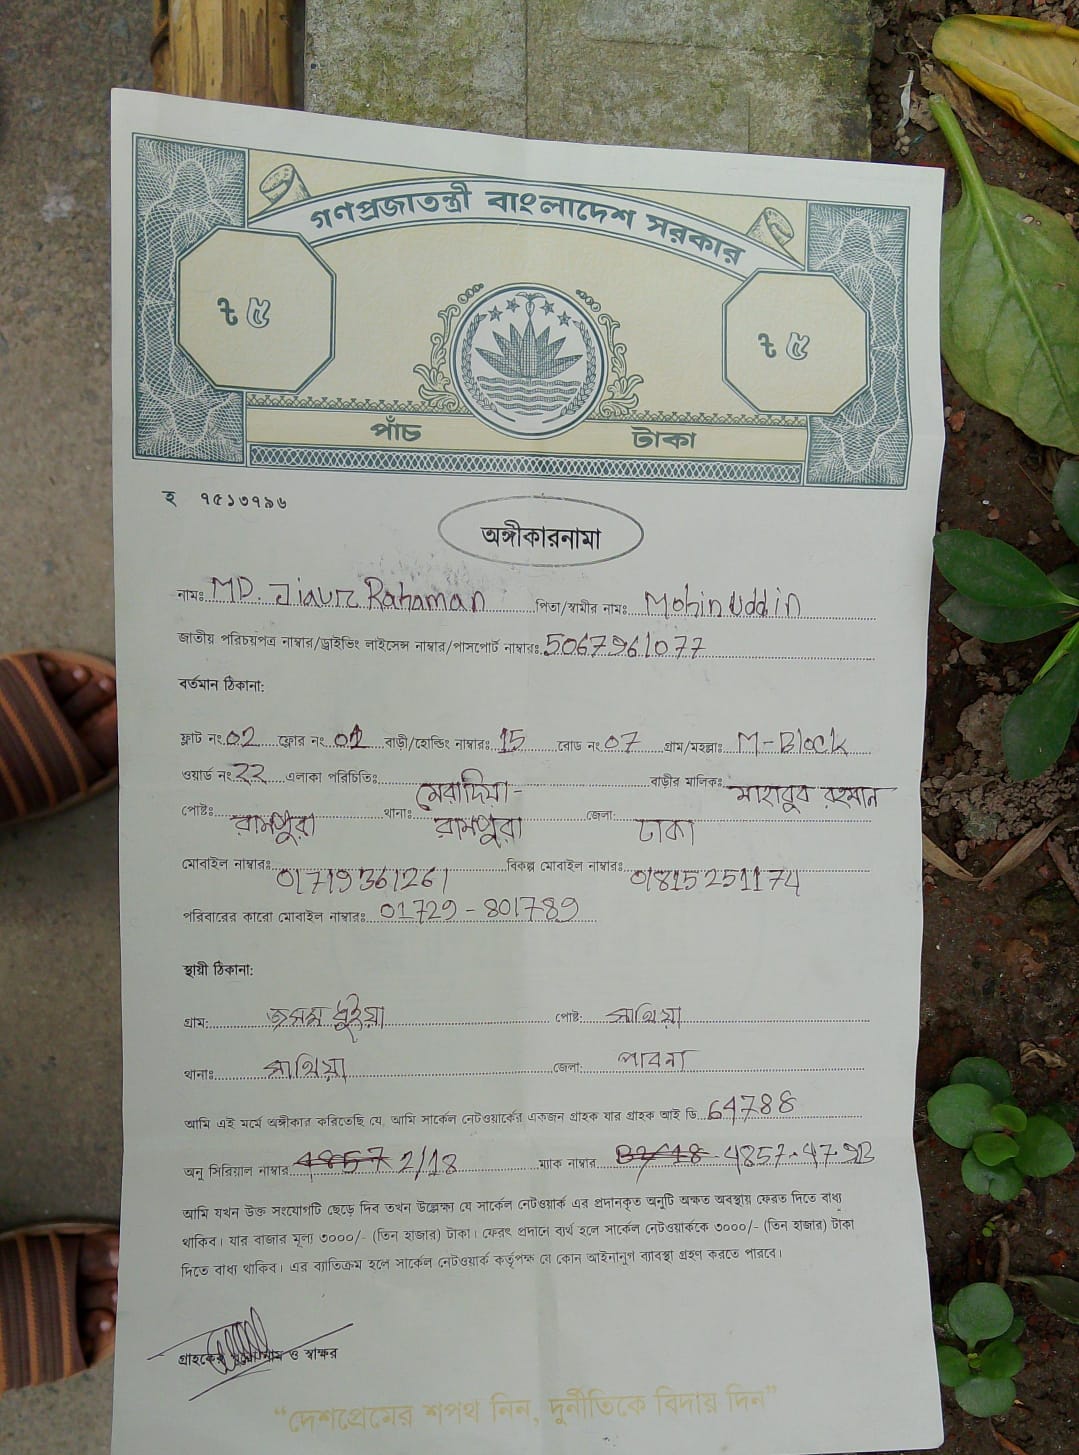 গণপ্রজাতন্ত্রী বাংলাদেশ সরকার
৳ ৫ ৳ ৫
পাঁচ টাকা
হ ৭৫১৩৭৯৬
অঙ্গীকারনামা
নামঃ MD. Jiaur Rahaman পিতা/স্বামীর নামঃ Mohin Uddin
জাতীয় পরিচয়পত্র নাম্বার/ড্রাইভিং লাইসেন্স নাম্বার/পাসপোর্ট নাম্বারঃ 5067961077
বর্তমান ঠিকানা:
ফ্লাট নং 02 ফ্লোর নং 01 বাড়ী/হোল্ডিং নাম্বারঃ 15 রোড নং 07 গ্রাম/মহল্লাঃ M-Block
ওয়ার্ড নং 22 এলাকা পরিচিতিঃ মেরাদিয়া- বাড়ীর মালিকঃ মাহাবুব রহমান
পোষ্টঃ রামপুরা থানাঃ রামপুরা জেলা: ঢাকা
মোবাইল নাম্বারঃ 01719361261 বিকল্প মোবাইল নাম্বারঃ 01815251174
পরিবারের কারো মোবাইল নাম্বারঃ 01729-801789
স্থায়ী ঠিকানা:
গ্রাম: ভুইয়া পোষ্ট: সাথিয়া
থানাঃ সাথিয়া জেলা: পাবনা
আমি এই মর্মে অঙ্গীকার করিতেছি যে, আমি সার্কেল নেটওয়ার্কের একজন গ্রাহক যার গ্রাহক আই ডি 64788
অনু সিরিয়াল নাম্বার 4857 2/18 ম্যাক নাম্বার 4857-47-9B
আমি যখন উক্ত সংযোগটি ছেড়ে দিব তখন উল্লেক্ষা যে সার্কেল নেটওয়ার্ক এর প্রদানকৃত অনুটি অক্ষত অবস্থায় ফেরত দিতে বাধ্য
থাকিব। যার বাজার মূল্য ৩০০০/- (তিন হাজার) টাকা। ফেরৎ প্রদানে ব্যর্থ হলে সার্কেল নেটওয়ার্ককে ৩০০০/- (তিন হাজার) টাকা
দিতে বাধ্য থাকিব। এর ব্যাতিক্রম হলে সার্কেল নেটওয়ার্ক কর্তৃপক্ষ যে কোন আইনানুগ ব্যাবস্থা গ্রহণ করতে পারবে।
গ্রাহকের ও স্বাক্ষর
“দেশপ্রেমের শপথ নিন, দুর্নীতিকে বিদায় দিন”